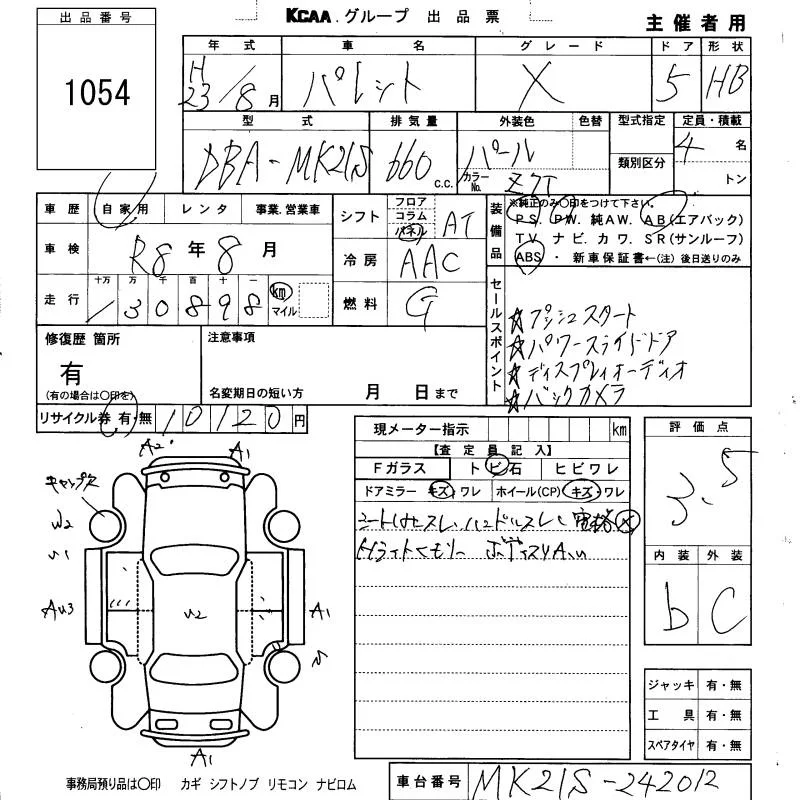 出品番号
1054
KCAA.グループ 出品票
主催者用
年式 車名 グレード ドア 形状
H23/8月 パレット X 5 HB
型式 排気量 外装色 色替 型式指定 定員・積載
DBA-MK21S 660 c.c. パール カラーNo. Z7T 類別区分 4名
トン
車歴 自家用 レンタ 事業.営業車
シフト フロア コラム パネル AT
装備品
※純正のみ〇印をつけて下さい。
PS. PW. 純AW. AB(エアバック)
TV. ナビ. カワ. SR(サンルーフ)
ABS ・ 新車保証書←(注)後日送りのみ
車検 R8年8月
冷房 AAC
走行 十万 万 千 百 十 一
130898 km マイル
燃料 G
セールスポイント
☆プッシュスタート
☆パワースライドドア
☆ディスプレイオーディオ
☆バックカメラ
修復歴 箇所
有
(有の場合は〇印を)
注意事項
名変期日の短い方 月 日まで
リサイクル券 有・無 10120円
現メーター指示 km
【査定員記入】
Fガラス トビ石 ヒビワレ
ドアミラー キズ・ワレ ホイール(CP) キズ・ワレ
シートはスレ、ハンドルスレ
Hライトくもり
評価点
3.5
内装 外装
b C
A2 A1
キャップス
W2
A1
W2
A1
ジャッキ 有・無
工具 有・無
スペアタイヤ 有・無
事務局預り品は〇印 カギ シフトノブ リモコン ナビロム
車台番号 MK21S-242012